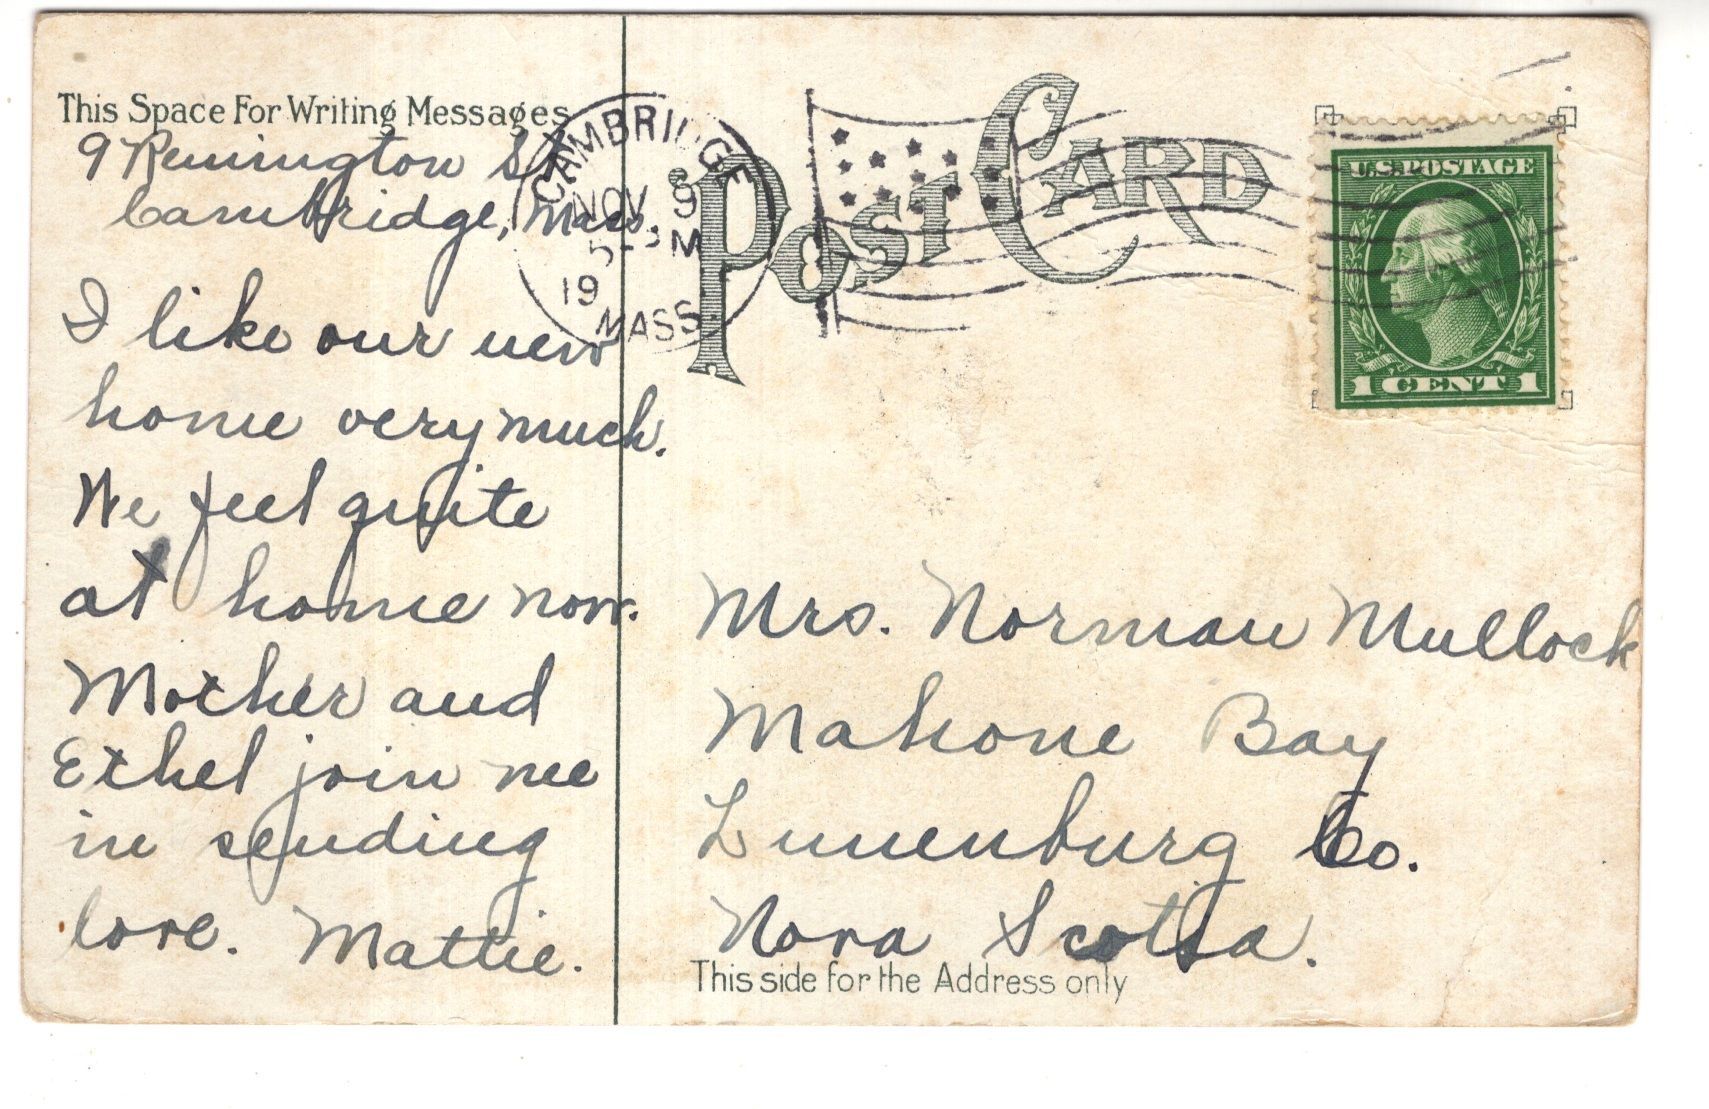 This Space For Writing Messages
9 Remington St
Cambridge, Mass.
I like our new
home very much.
We feel quite
at home now.
Mother and
Ethel join me
in sending
love. Mattie.
CAMBRIDGE
NOV 9
M
19
MASS
POST CARD
U.S. POSTAGE
1 CENT 1
Mrs. Norman Mullock
Mahone Bay
Lunenburg Co.
Nova Scotia.
This side for the Address only